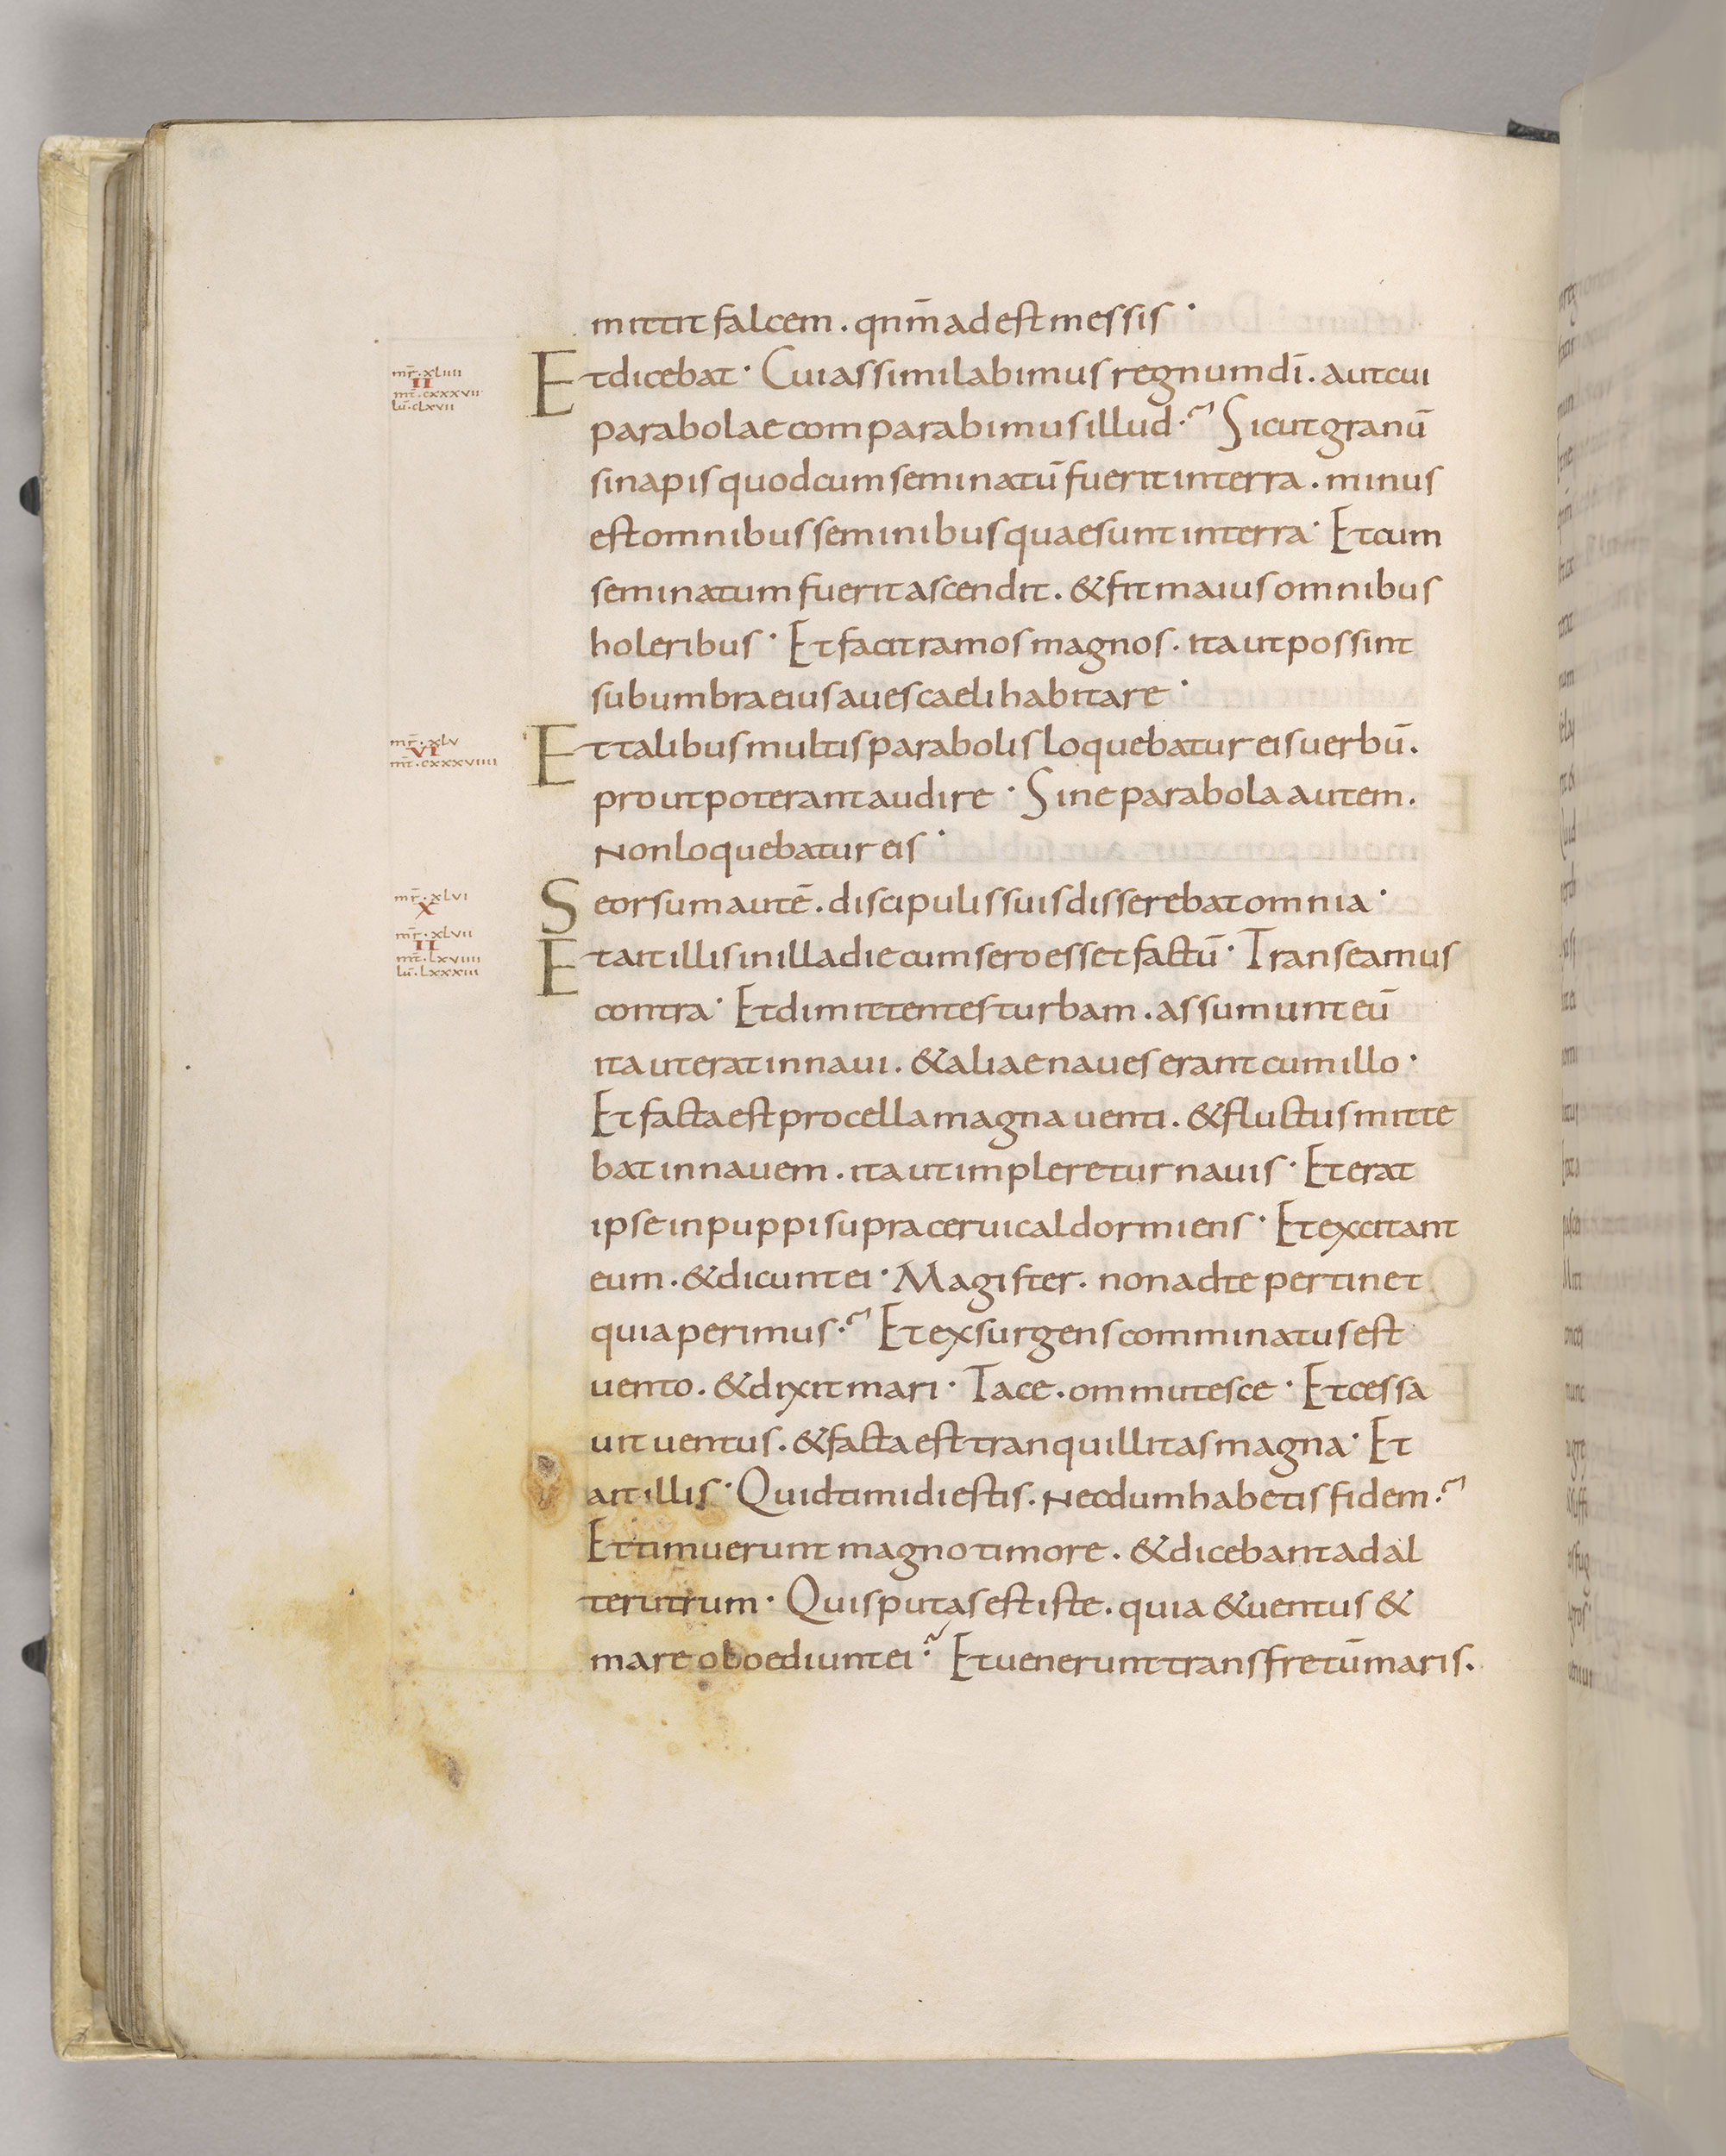 mittit falcem . qnm̄ adest messis ·
mr̄ . xliiii
II
mt̄ . cxxxvii
lū . clxvii
Et dicebat · Cui assimilabimus regnum dī . aut cui
parabolae comparabimus illud ·? Sicut granū
sinapis quod cum seminatū fuerit in terra . minus
est omnibus seminibus quae sunt in terra · Et cum
seminatum fuerit ascendit . & fit maius omnibus
holeribus · Et facit ramos magnos . ita ut possint
sub umbra eius aues caeli habitare ·
mr̄ . xlv
VI
mt̄ . cxxxviiii
Et talibus multis parabolis loquebatur eis uerbū .
prout poterant audire · Sine parabola autem .
Non loquebatur eis ·
mr̄ . xlvi
X
Seorsum autē . discipulis suis disserebat omnia ·
mr̄ . xlvii
II
mt̄ . lxviiii
lū . lxxxiii
Et ait illis in illa die cum sero esset factū · Transeamus
contra · Et dimittentes turbam . assumunt eū
ita ut erat in naui . & aliae naues erant cum illo ·
Et facta est procella magna uenti . & fluctus mitte
bat in nauem . ita ut impleretur nauis · Et erat
ipse in puppi supra ceruical dormiens · Et excitant
eum . & dicunt ei · Magister . non ad te pertinet
quia perimus ·? Et exsurgens comminatus est
uento . & dixit mari · Tace . ommutesce · Et cessa
uit uentus . & facta est tranquillitas magna · Et
ait illis · Quid timidi estis . Necdum habetis fidem ·?
Et timuerunt magno timore . & dicebant ad al
terutrum · Quis putas est iste . quia & uentus &
mare oboediunt ei ·? Et uenerunt trans fretū maris .